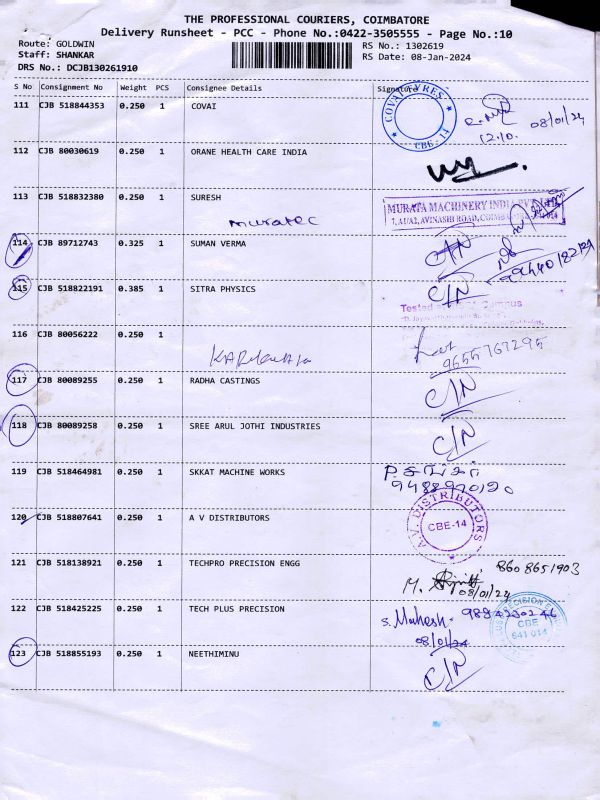 THE PROFESSIONAL COURIERS, COIMBATORE
Delivery Runsheet - PCC - Phone No.:0422-3505555 - Page No.:10
Route: GOLDWIN
Staff: SHANKAR
DRS No.: DCJB130261910
RS No.: 1302619
RS Date: 08-Jan-2024
S No Consignment No Weight PCS Consignee Details Signature
111 CJB 518844353 0.250 1 COVAI
COVAI TYRES
CBE-14
08/01/24
12.10.
112 CJB 80030619 0.250 1 ORANE HEALTH CARE INDIA
113 CJB 518832380 0.250 1 SURESH
muratec
MURATA MACHINERY INDIA PVT. LTD
7, A1/A2, AVINASHI ROAD,
114 CJB 89712743 0.325 1 SUMAN VERMA
C/N
115 CJB 518822191 0.385 1 SITRA PHYSICS
C/N
Tested Campus
116 CJB 80056222 0.250 1
9655767295
117 CJB 80089255 0.250 1 RADHA CASTINGS
C/N
118 CJB 80089258 0.250 1 SREE ARUL JOTHI INDUSTRIES
C/N
119 CJB 518464981 0.250 1 SKKAT MACHINE WORKS
9488970190
120 CJB 518807641 0.250 1 A V DISTRIBUTORS
A.V. DISTRIBUTORS
CBE-14
121 CJB 518138921 0.250 1 TECHPRO PRECISION ENGG
8608651903
M.
08/01/24
122 CJB 518425225 0.250 1 TECH PLUS PRECISION
S. Mahesh. 9884230246
08/01/24
PRECISION
CBE
641 014
123 CJB 518855193 0.250 1 NEETHIMINU
C/N